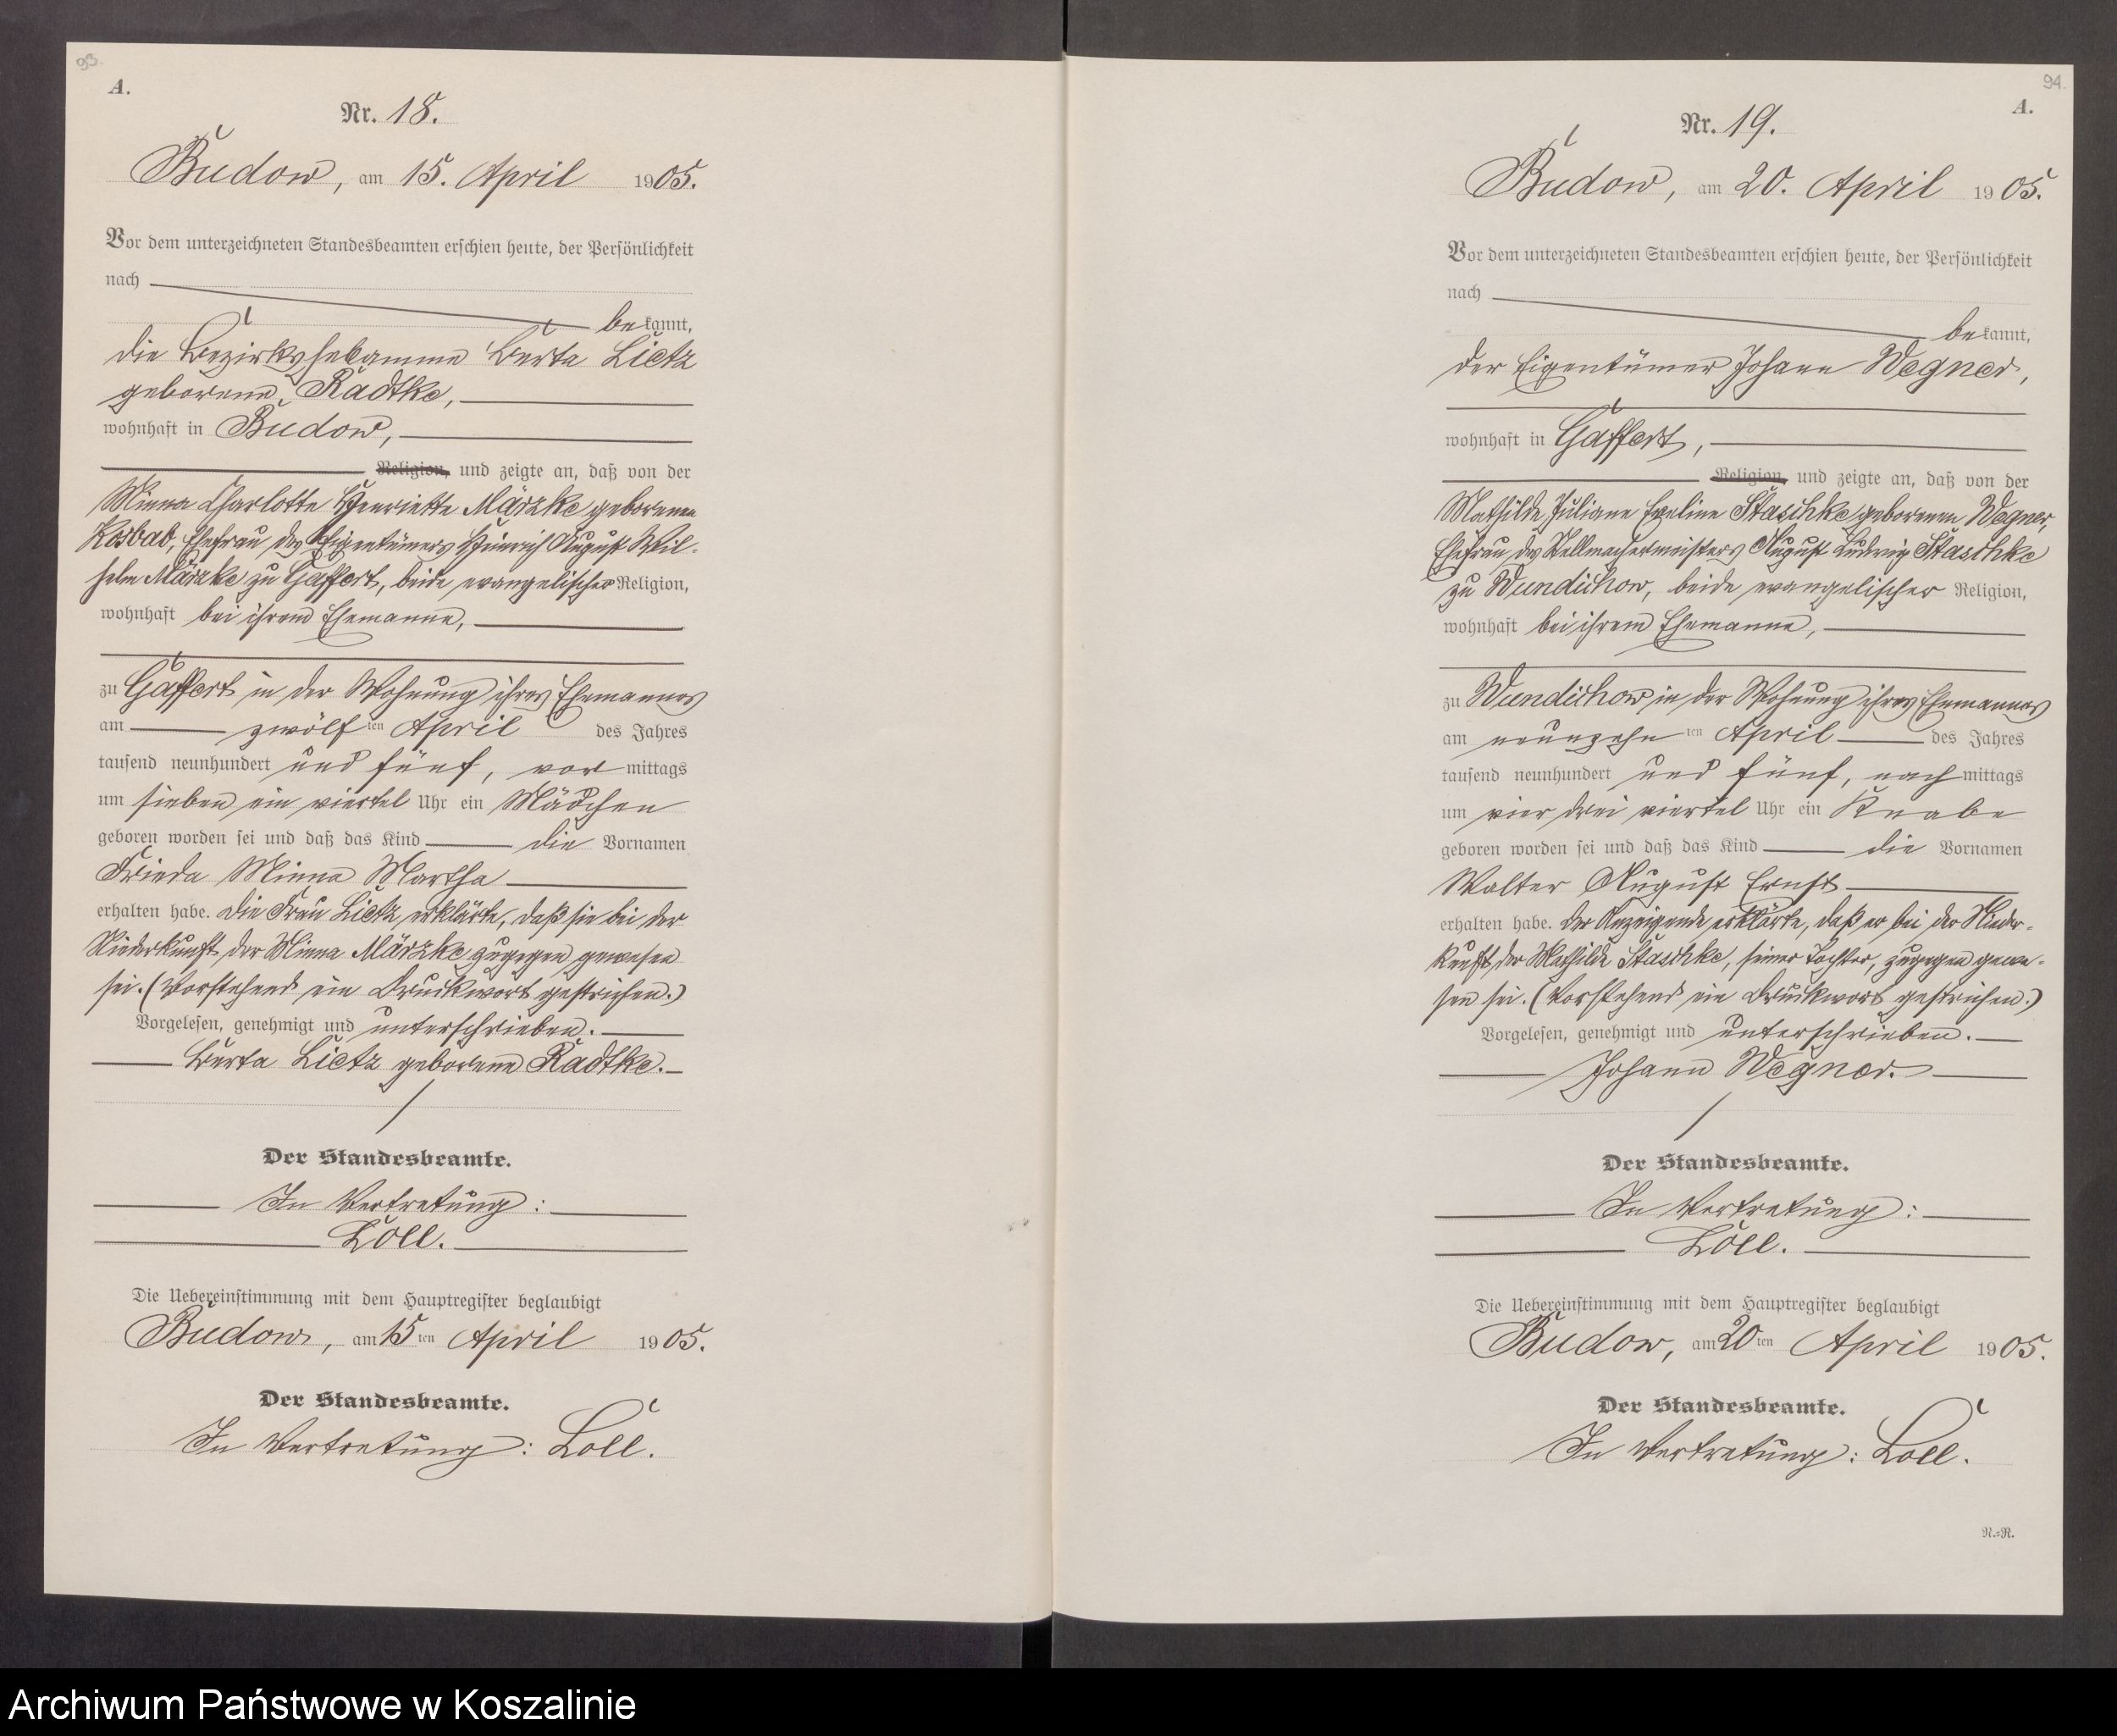 93.
A.
Nr. 18.
Budow, am 15. April 1905.
Vor dem unterzeichneten Standesbeamten erschien heute, der Persönlichkeit
nach
bekannt,
die Bezirkshebamme Berta Lietz
geborene Radtke,
wohnhaft in Budow,
Religion, und zeigte an, daß von der
Minna Charlotte Henriette Märzke geborenen
Kosbab, Ehefrau des Eigentümers Heinrich August Wil-
helm Märzke zu Gaffert, beide evangelischer Religion,
wohnhaft bei ihrem Ehemanne,
zu Gaffert in der Wohnung ihres Ehemannes
am zwölften April des Jahres
tausend neunhundert und fünf, vormittags
um sieben ein viertel Uhr ein Mädchen
geboren worden sei und daß das Kind die Vornamen
Frieda Minna Martha
erhalten habe. Die Frau Lietz erklärte, daß sie bei der
Niederkunft der Minna Märzke zugegen gewesen
sei. (Vorstehend ein Druckwort gestrichen.)
Vorgelesen, genehmigt und unterschrieben.
Berta Lietz geborene Radtke.
Der Standesbeamte.
In Vertretung:
Loll.
Die Uebereinstimmung mit dem Hauptregister beglaubigt
Budow, am 15ten April 1905.
Der Standesbeamte.
In Vertretung: Loll.
94.
A.
Nr. 19.
Budow, am 20. April 1905.
Vor dem unterzeichneten Standesbeamten erschien heute, der Persönlichkeit
nach
bekannt,
der Eigentümer Johann Wegner,
wohnhaft in Gaffert,
Religion, und zeigte an, daß von der
Mathilde Juliane Eveline Staschke geborenen Wegner,
Ehefrau des Stellmachermeisters August Ludwig Staschke
zu Wundichow, beide evangelischer Religion,
wohnhaft bei ihrem Ehemanne,
zu Wundichow in der Wohnung ihres Ehemannes
am neunzehnten April des Jahres
tausend neunhundert und fünf, nachmittags
um vier drei viertel Uhr ein Knabe
geboren worden sei und daß das Kind die Vornamen
Walter August Ernst
erhalten habe. Der Anzeigende erklärte, daß er bei der Nieder-
kunft der Mathilde Staschke, seiner Tochter, zugegen gewe-
sen sei. (Vorstehend ein Druckwort gestrichen.)
Vorgelesen, genehmigt und unterschrieben.
Johann Wegner.
Der Standesbeamte.
In Vertretung:
Loll.
Die Uebereinstimmung mit dem Hauptregister beglaubigt
Budow, am 20ten April 1905.
Der Standesbeamte.
In Vertretung: Loll.
N.=R.
Archiwum Państwowe w Koszalinie